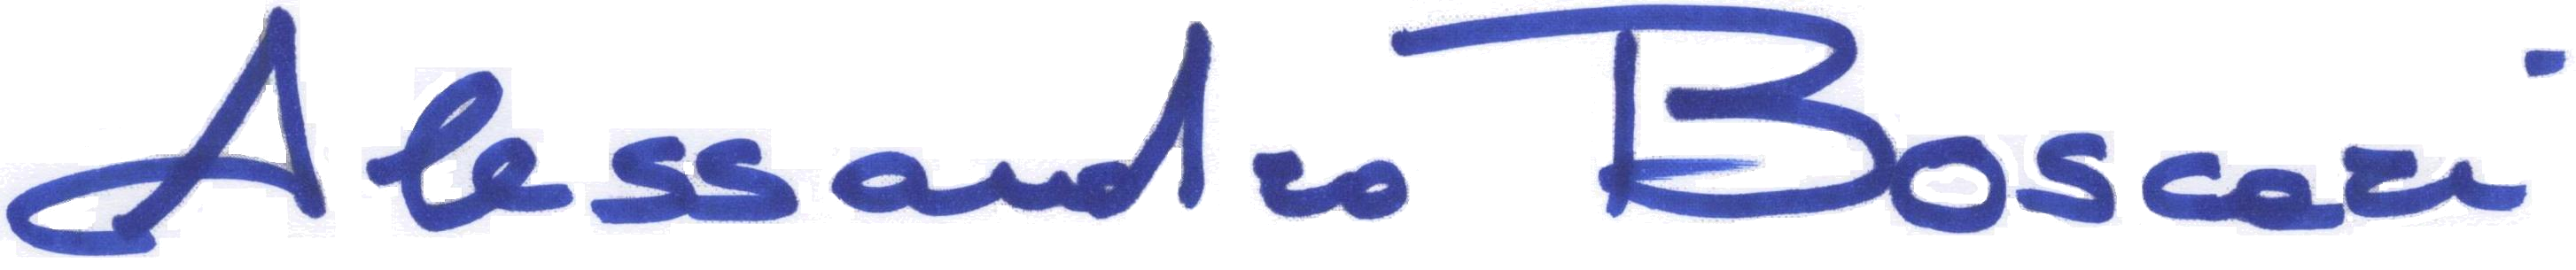 Alessandro Boscari